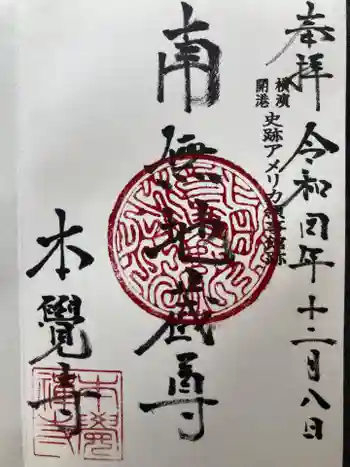 奉拝 令和四年十二月八日
横濱
開港
史跡アメリカ領事館跡
南無地蔵尊
本覺寺